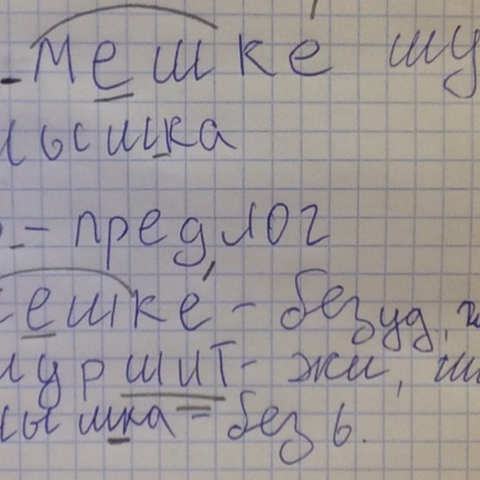 мешке шу
мышка
- предлог
мешке - безуд.
шуршит - жи, ши
мышка - без ь.